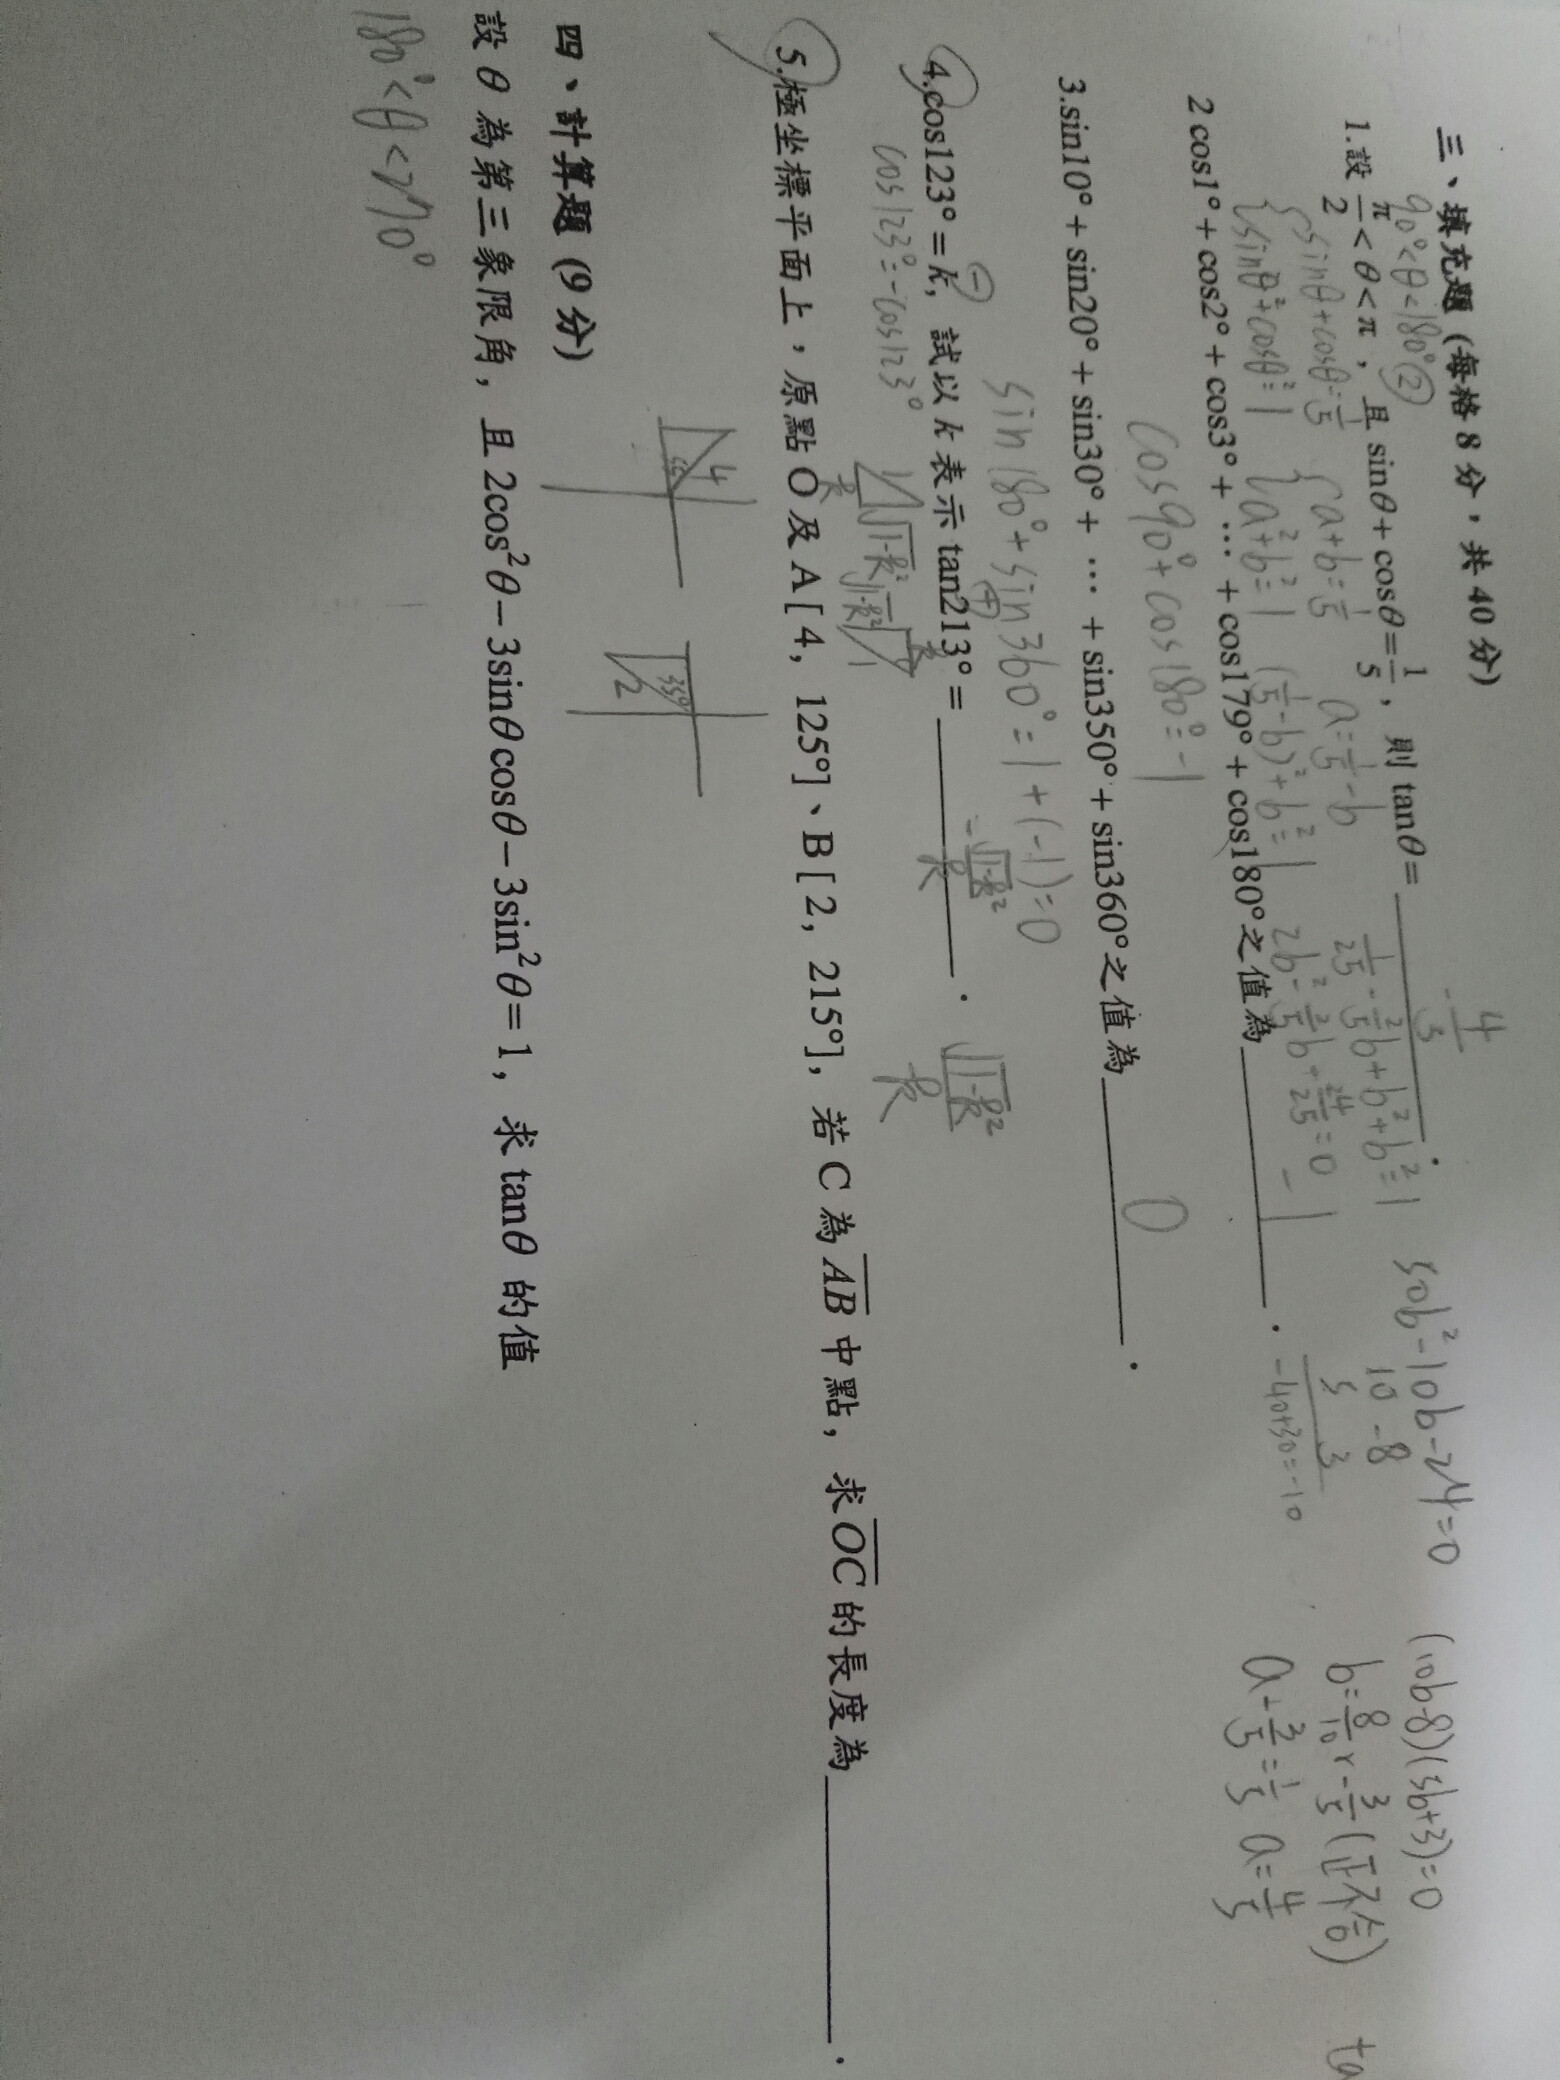 三、填充題 (每格 8 分，共 40 分)
90°<θ<180° ②
1.設 π/2 < θ < π，且 sinθ + cosθ = 1/5，則 tanθ = ______.
-4/3
{ sinθ + cosθ = 1/5
{ sinθ² + cosθ² = 1
{ a + b = 1/5
{ a² + b² = 1
a = 1/5 - b
(1/5 - b)² + b² = 1
1/25 - 2/5 b + b² + b² = 1
2b² - 2/5 b + 24/25 = 0
50b² - 10b - 24 = 0
10 -8
5 3
-40+30=-10
(10b-8)(5b+3)=0
b = 8/10 r - 3/5 (正不合)
a - 3/5 = 1/5 a = 4/5
ta
2 cos1° + cos2° + cos3° + … + cos179° + cos180° 之值為______.
-1
cos90° + cos180° = -1
3.sin10° + sin20° + sin30° + … + sin350° + sin360° 之值為______.
0
sin180° + sin360° = 1 + (-1) = 0
4.cos123° = k, 試以 k 表示 tan213° = ______.
(-)
(+)
-√1-k²/k
√1-k²/k
cos123° = -cos123°
k √1-k²
√1-k² k 1
5.極坐標平面上，原點 O 及 A [ 4, 125°]、B [ 2, 215°], 若 C 為 AB 中點, 求 OC 的長度為______.
4 55
35° 2
四、計算題 (9 分)
設 θ 為第三象限角, 且 2cos²θ - 3sinθcosθ - 3sin²θ = 1, 求 tanθ 的值
180° < θ < 270°